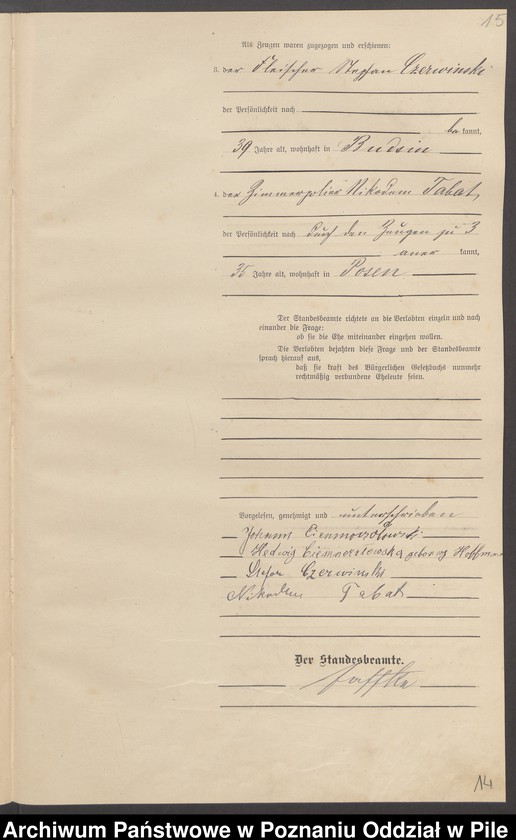 15
Als Zeugen waren zugezogen und erschienen:
3. der Fleischer Stephan Czerwinski
der Persönlichkeit nach
be kannt,
39 Jahre alt, wohnhaft in Budsin
4. der Zimmerpolier Nikodem Tabat,
der Persönlichkeit nach durch den Zeugen zu 3
aner kannt,
35 Jahre alt, wohnhaft in Posen
Der Standesbeamte richtete an die Verlobten einzeln und nach
einander die Frage:
ob sie die Ehe miteinander eingehen wollen.
Die Verlobten bejahten diese Frage und der Standesbeamte
sprach hierauf aus,
daß sie kraft des Bürgerlichen Gesetzbuchs nunmehr
rechtmäßig verbundene Eheleute seien.
Vorgelesen, genehmigt und unterschrieben
Johann
Hedwig geborene Hoffmann
Czerwinski
Nikodem Tabat
Der Standesbeamte.
14
Archiwum Państwowe w Poznaniu Oddział w Pile